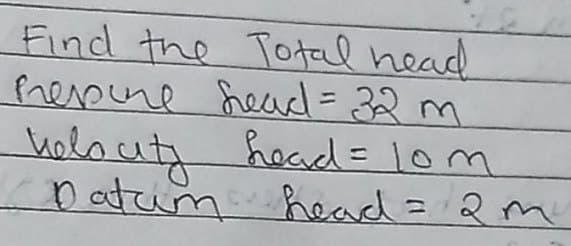 Find the Total head
Pressure head = 32 m
Velocity head = 10 m
Datum head = 2 m